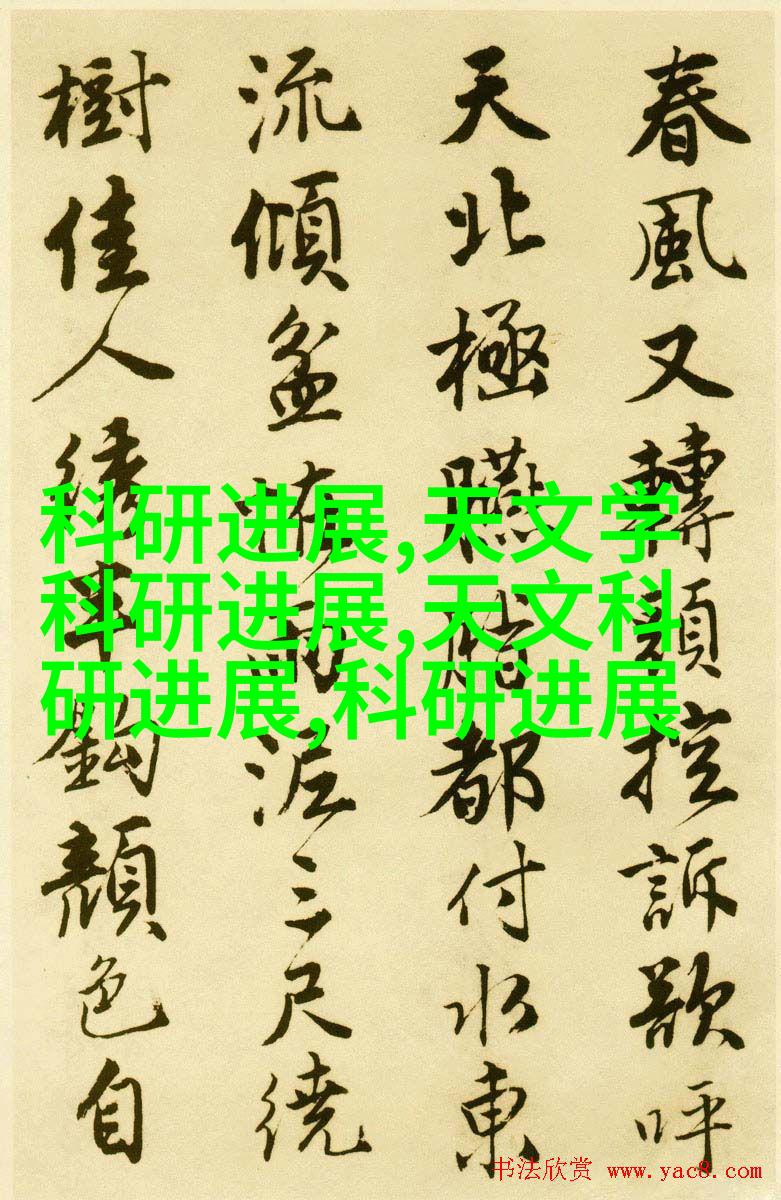 春風又轉頭控訴欲呼
天北極臙脂都付水東
流傾盆雨泥三尺繞
樹佳人繡半鉤顏色自
科研进展,天文学
科研进展,天文科
研进展,科研进展
书法欣赏 www.yac8.com